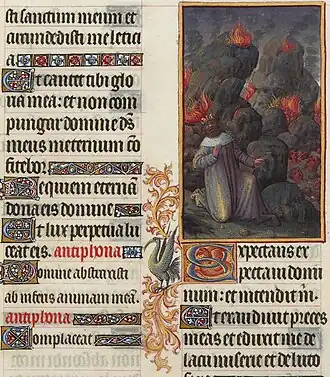 sti sanctum meum et
circundedisti me leticia
a
Et cantet tibi glo
ria mea: et non com
pungar domine d̄s
meus in eternum cō
fitebor
Requiem eternā
dona eis domine
Et lux perpetua lu
ceat eis. antiphona
Domine abstraxisti
ab inferis animam meā.
antiphona
Complaceat
Expectans ex
pectaui domi
num: et intendit m̄.
Et exaudiuit preces
meas et eduxit me de
lacu miserie et de luto